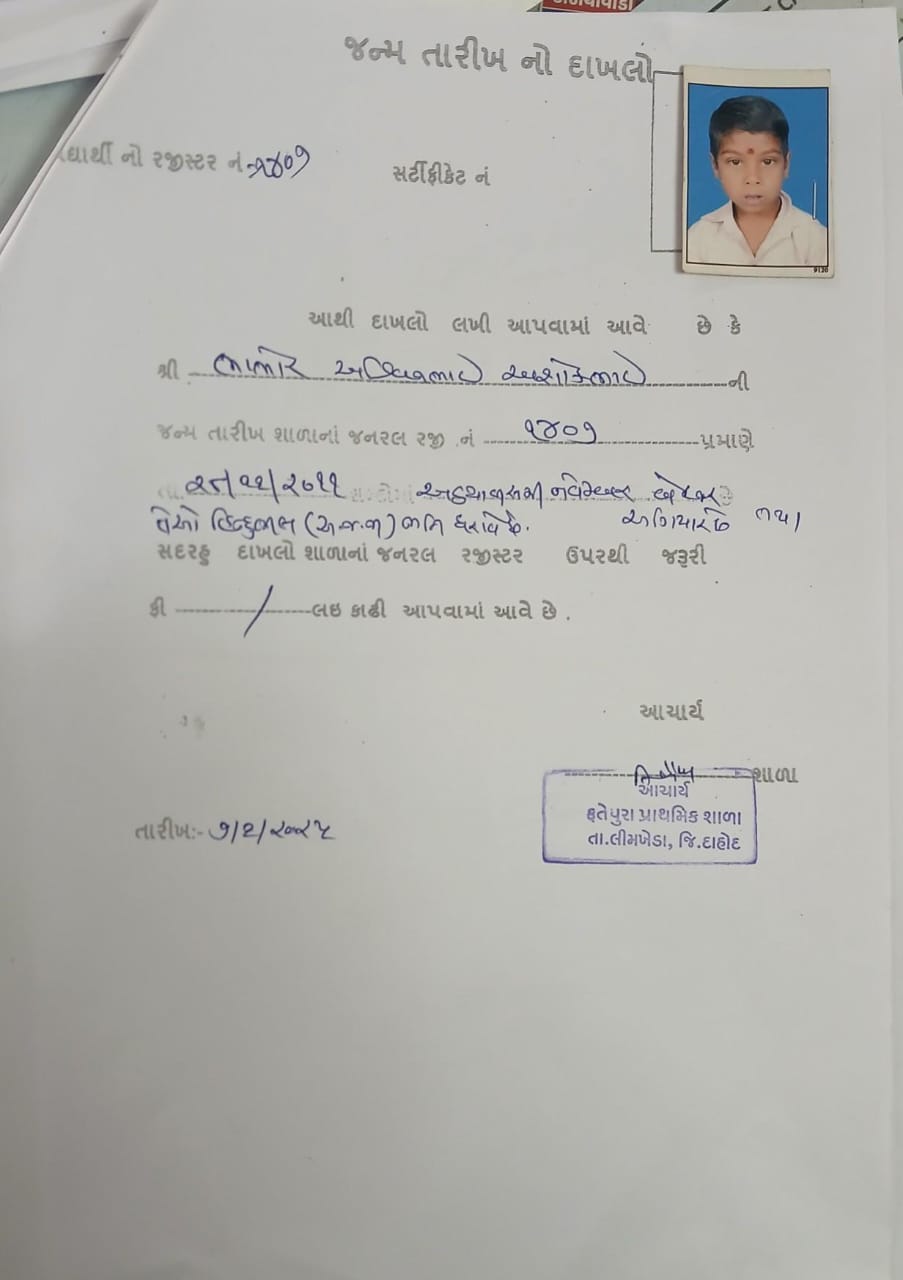 જન્મ તારીખ નો દાખલો
દ્યાર્થી નો રજીસ્ટર નં ૧૪૦૭
સર્ટીફીકેટ નં
9120
આથી દાખલો લખી આપવામાં આવે છે કે
શ્રી ભાભોર અશ્વિનભાઈ અશોકભાઈ ની
જન્મ તારીખ શાળાનાં જનરલ રજી .નં ૧૪૦૭ પ્રમાણે
તા. ૨૮/૧૧/૨૦૧૧ અઠ્યાવીસમી નવેમ્બર બે હજાર
અગિયાર છે તથા
તેઓ હિન્દુ ભીલ (અ.જ.જા) જાતિ ધરાવે છે.
સદરહુ દાખલો શાળાનાં જનરલ રજીસ્ટર ઉપરથી જરૂરી
ફી / લઇ કાઢી આપવામાં આવે છે .
આચાર્ય
શાળા
આચાર્ય
ફતેપુરા પ્રાથમિક શાળા
તા.લીમખેડા, જિ.દાહોદ
તારીખ:- ૭/૨/૨૦૨૫